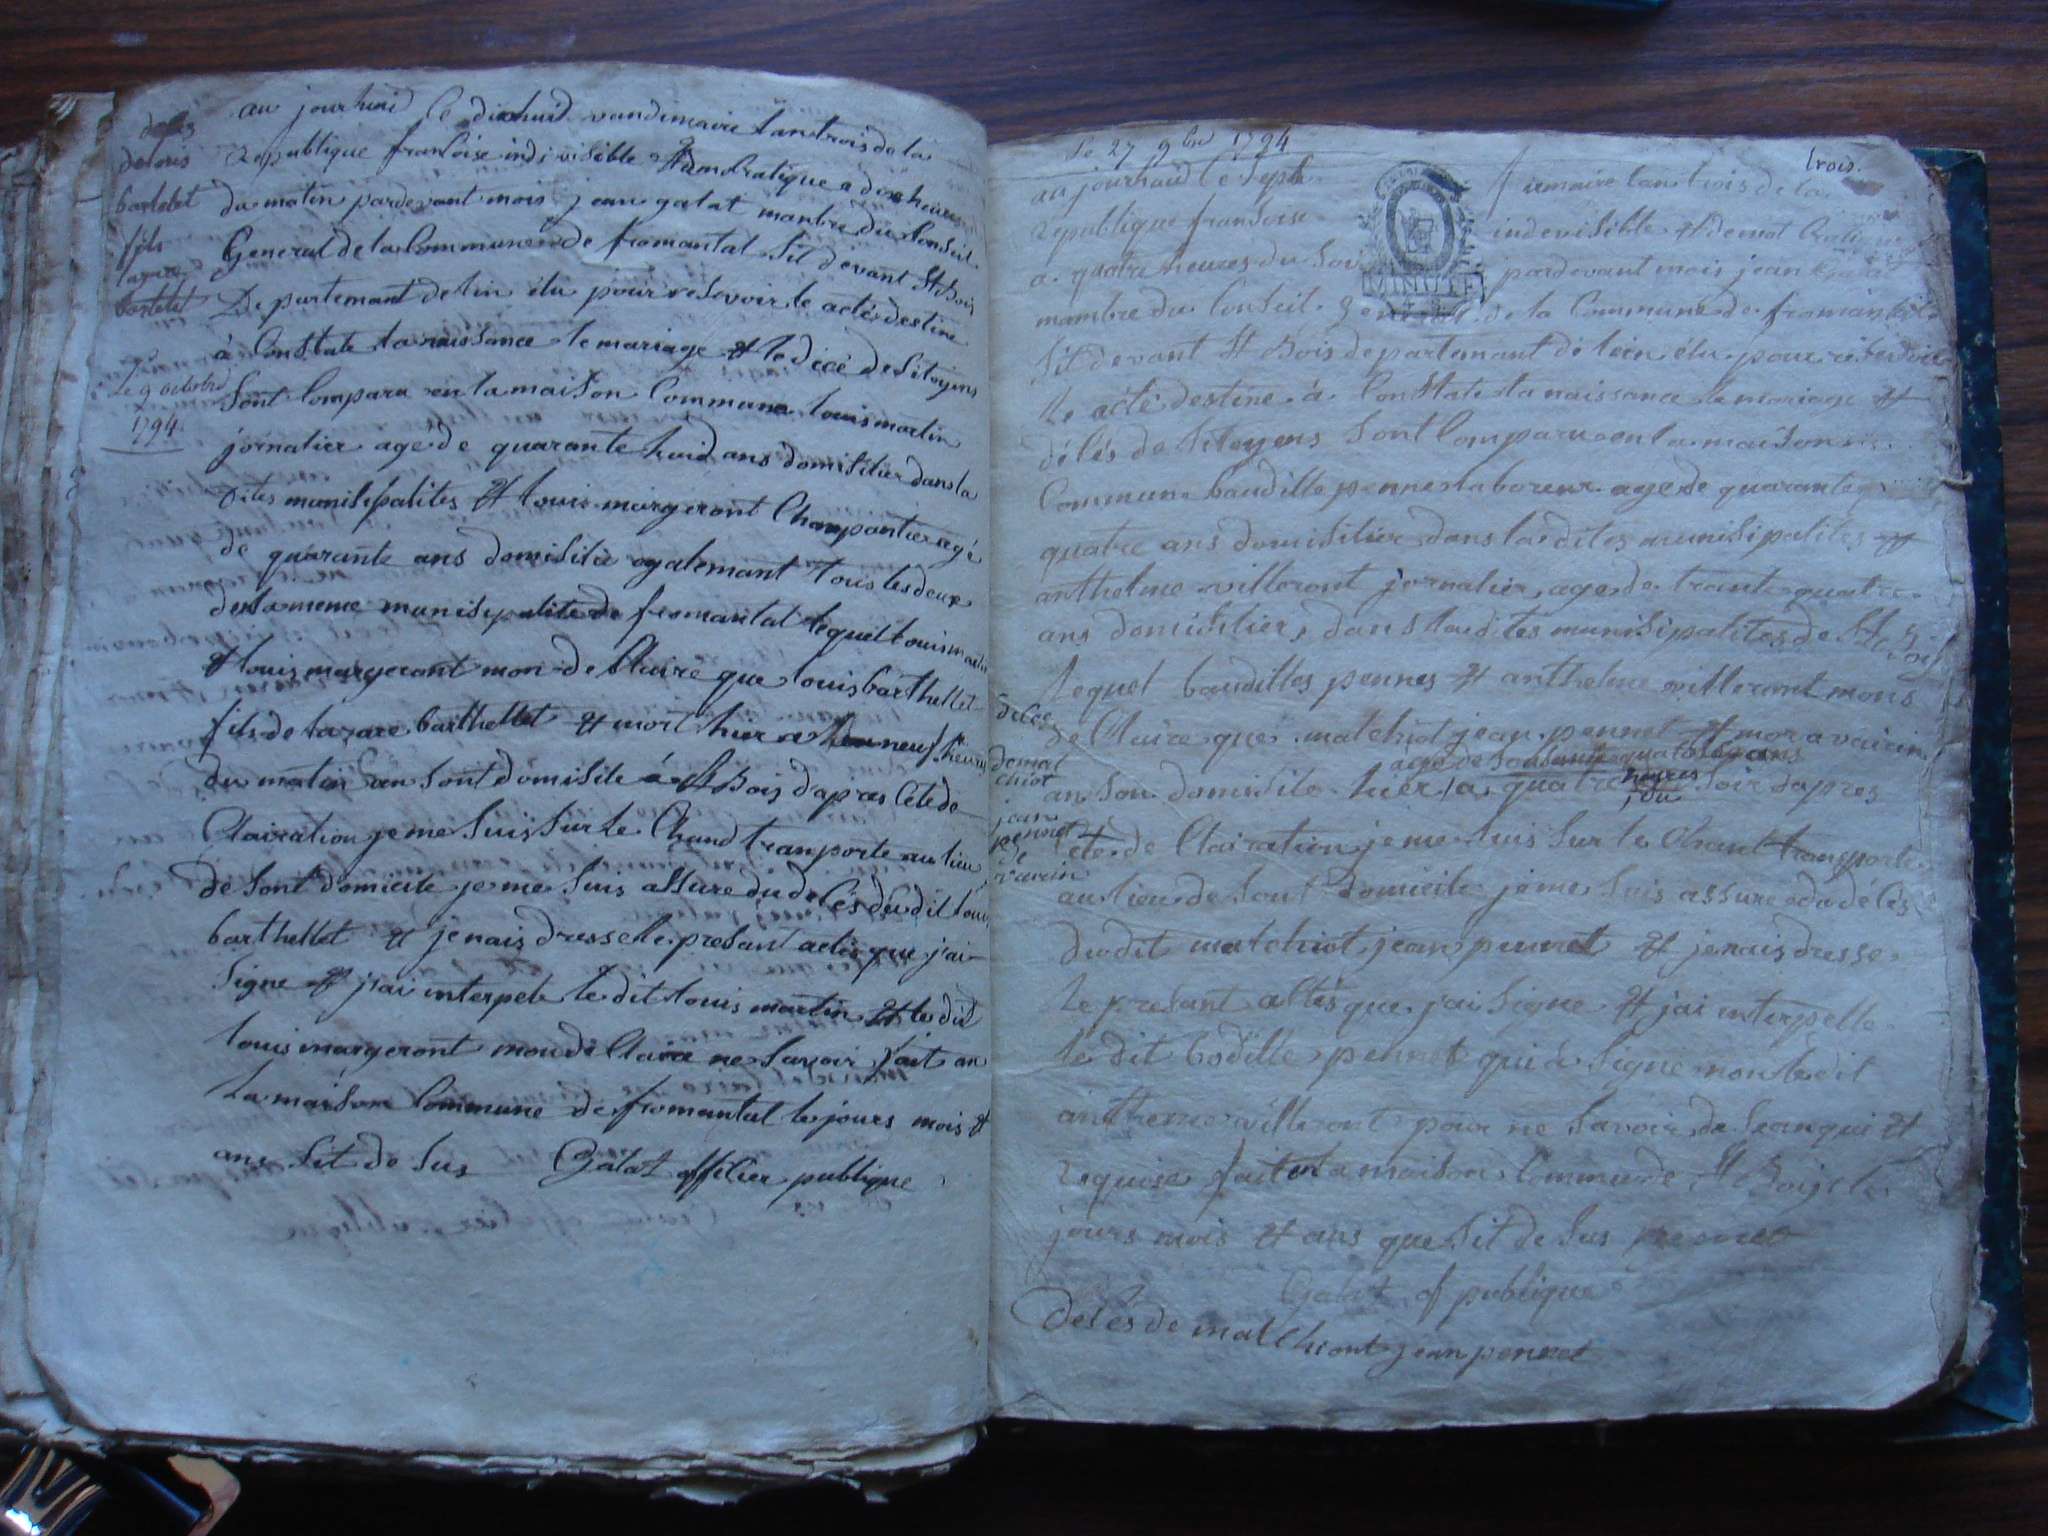 au jourhuid le dixhuid vandimaire lan trois de la
republique fransoise indivisible & demokratique a dix heures
du matin pardevant mois jean galat manbre du Conseil
General de la Commune de fromantal sit devant St Bois
Departemant de lin élu pour resevoir le acte destine
à Constate la naissance le mariage & le décé de sitoyens
sont Comparu en la maison Commune louis martin
jornalier age de quarante huid ans domisilier dans la
dites munisipalites & louis margeront Charpantier agé
de quarante ans domisilié egalemant tous les deux
de la meme munisipalite de fromantal lequel louis martin
& louis margeront mon de Claire que louis barthellet
fils de lazare barthellet & mort hier a neuf heures
du matin an sont domisile à St Bois dapres Cete de
Clairation je me suis sur le Chand tranporte au lieu
de sont domicile je me suis assure du decés du dit louis
barthellet & jenais dresselle presant actes que jai
signe & jai interpele le dit louis martin & le dit
louis margeront mon de Claire ne savoir fait an
la maison Commune de fromantal le jours mois &
ans sit de sus Galat offisier publique
deces
de loris
bartelet
fils
lazare
bartelet
le 9 octobre
1794
le 27 9bre 1794
trois
au jourhuid le sept frimaire lan trois de la
republique fransoise indevisible & demokratique
a quatre heures du soir pardevant mois jean Galat
MINUTE
mambre du Conseil general de la Commune de fromantal
sit devant St Bois departemant de lein élu pour resevoir
le acte destine à Constate la naissance le mariage &
décés de sitoyens sont Comparu en la maison
Commune baudille pennet laboreur age de quarante
quatre ans domisilier dans la dites munisipalites &
anthelme villeront jornalier age de trante quatre
ans domisilier dans la dites munisipalites de St Bois
lequel baudilles pennes & anthelme villeront mons
de Claire que malchiot jean pennet & mor a vairin
age de soisante quatorze ans
an son domisile hier a quatre heures du soir dapres
Cete de Clairation je me suis sur le Chant transporte
au lieu de sont domicile je me suis assure du décés
du dit malchiot jean pennet & jenais dresse
le presant actes que jai signe & jai interpelle
le dit bodille pennet qui à signe mon le dit
antheme villeront pour ne savoir de se an qui &
requise fait an la maison Commune de St Bois le
jours mois & ans que sit de sus pennet
Galat of publique
decés de malchiont jean pennet
deces
de mal
chiot
jean
pennet
de
vairin